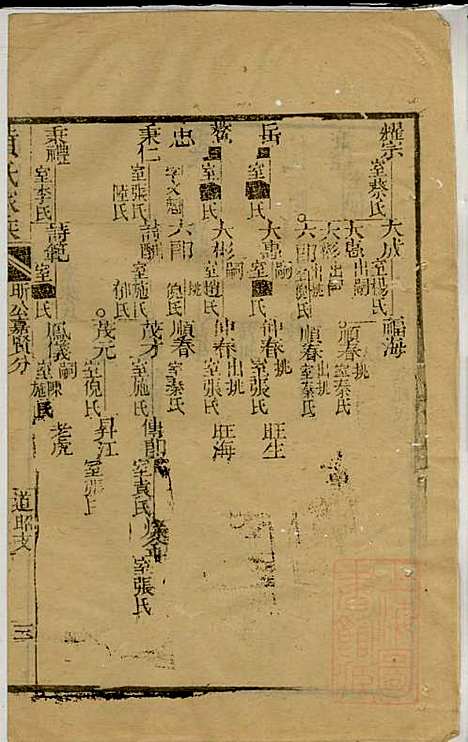 耀宗 室蔡氏 大成 室楊氏 福海
大惠 出嗣 順春 出挑 室秦氏
大彬 出嗣
六郎 出挑 順春 出挑 室秦氏
岳 室氏 大惠 嗣 室氏 仲春 挑 室張氏 旺生
鰲 室氏 大彬 嗣 室趙氏 仲春 室張氏 旺海
忠 字文 六郎 挑 倪氏 順春 室秦氏
秉仁 室張氏 陸氏 詩 室施氏 郁氏 茂才 室施氏 傳郎 室袁氏 室張氏
茂元 室倪氏 昇江 室張氏
秉禮 室李氏 詩範 室氏 鳳儀 嗣 室施氏 陳氏 老虎
黃氏家乘 昕公嘉賢分 道昭支 三